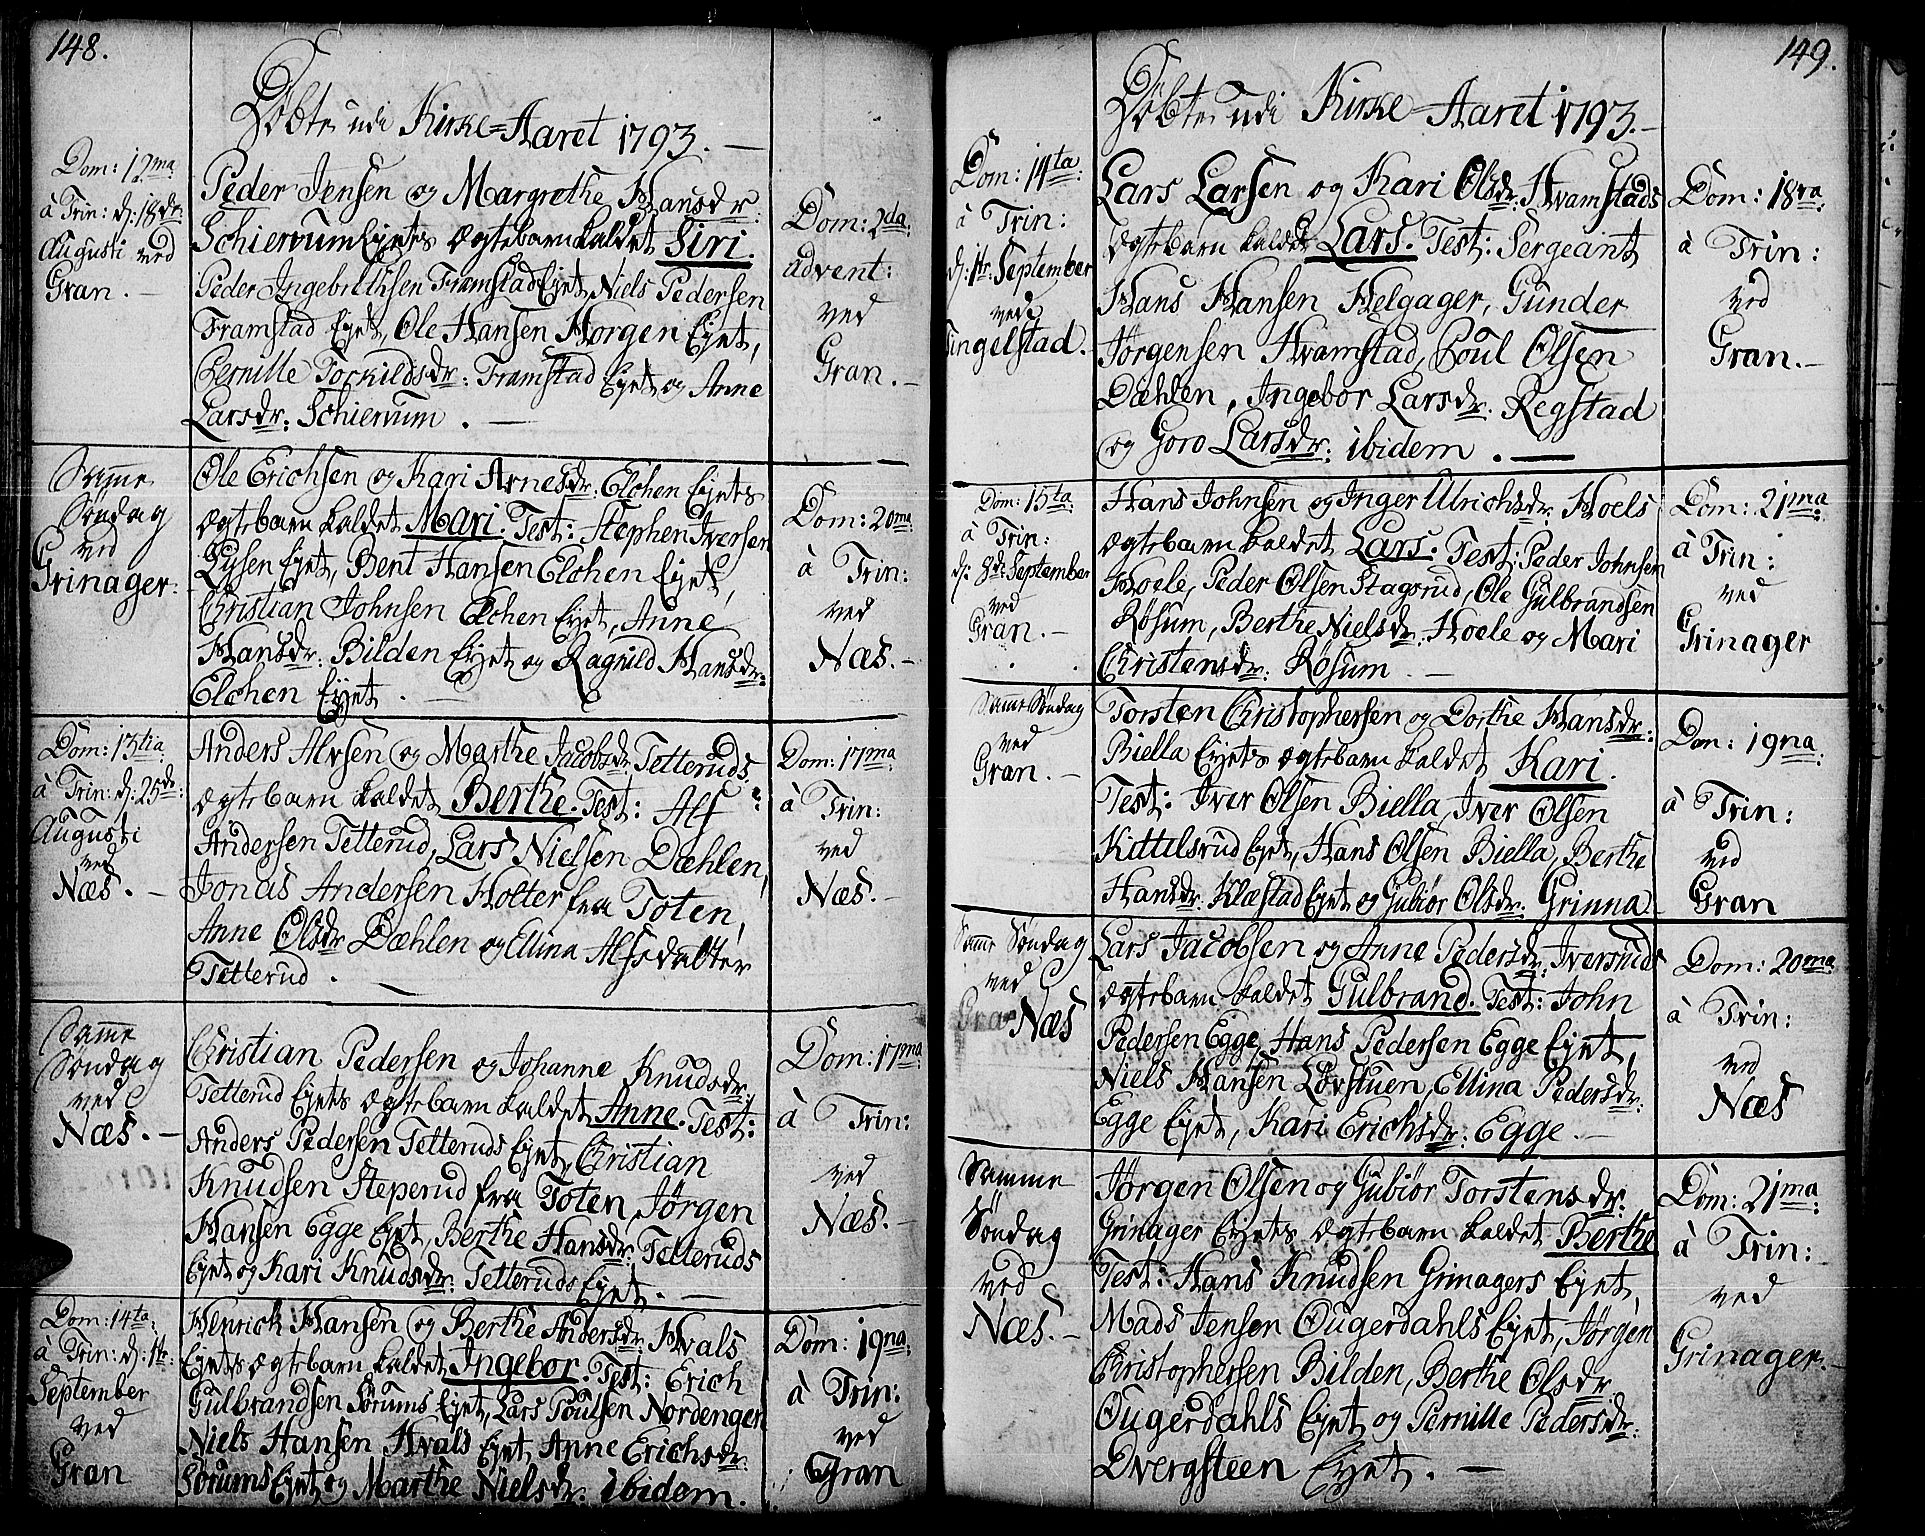 148.
Døbte udi Kirke-Aaret 1793. —
Dom: 12ma
à Trin: d: 18de
Augusti ved
Gran. —
Peder Jensen og Margrethe Hansdr:
Schiervum Eyets ægte barn kaldet Siri.
Peder Ingebrethsen Framstad Eyet, Niels Pedersen
Framstad Eyet, Ole Hansen Horgen Eyet,
Pernille Torkildsdr: Framstad Eyet og Anne
Larsdr: Schiervum. —
Dom: 2da
advent:
ved
Gran. —
Samme
Søndag
ved
Grinager.
Ole Erichsen og Kari Arnesdr: Elchen Eyets
ægte barn kaldet Mari. Test: Stephen Iversen
Lysen Eyet, Bent Hansen Elchen Eyet,
Christian Johnsen Elchen Eyet, Anne
Hansdr: Bilden Eyet og Ragnild Hansdr:
Elchen Eyet. —
Dom: 20ma
à Trin:
ved
Næs. —
Dom: 13tia
à Trin: d: 25de
Augusti
ved
Næs. —
Anders Alvsen og Marthe Jacobsdr: Tetteruds
ægte barn kaldet Berthe. Test: Alf
Andersen Tetterud, Lars Nielsen Dæhlen,
Jonas Andersen Holter fra Toten,
Anne Olsdr: Dæhlen og Ellina Alfsdatter
Tetterud. —
Dom: 17ma
à Trin:
ved
Næs. —
Samme
Søndag
ved
Næs. —
Christian Pedersen og Johanne Knudsdr:
Tetterud Eyets ægte barn kaldet Anne. Test:
Anders Pedersen Tetteruds Eyet, Christian
Knudsen Steperud fra Toten, Jørgen
Hansen Egge Eyet, Berthe Hansdr: Tetteruds
Eyet og Kari Knudsdr: Tetteruds Eyet. —
Dom: 17ma
à Trin:
ved
Næs. —
Dom: 14ta
à Trin: d: 1te
September
ved
Gran
Henrick Hansen og Berthe Andersdr: Hvals
Eyets ægte barn kaldet Ingebor. Test: Erich
Gulbrandsen Sørums Eyet, Lars Poulsen Nordengen
Niels Hansen Hvals Eyet, Anne Erichsdr:
Sørums Eyet og Marthe Nielsdr: ibidem.
Dom: 19na
à Trin:
ved
Gran
149.
Døbte udi Kirke-Aaret 1793. —
Dom: 14ta
à Trin:
d: 1te September
ved
Tingelstad.
Lars Larsen og Kari Olsdr: Hvamstads
ægte barn kaldet Lars. Test: Sergeant
Hans Hansen Helgager, Gunder
Jørgensen Hvamstad, Poul Olsen
Dæhlen, Ingebor Larsdr: Regstad
og Goro Larsdr: ibidem. —
Dom: 18va
à Trin:
ved
Gran. —
Dom: 15ta
à Trin:
d: 8de September
ved
Gran. —
Hans Johnsen og Inger Ulrichsdr: Hoels
ægte barn kaldet Lars. Test: Peder Johnsen
Hoele, Peder Olsen Stagsrud, Ole Gulbrandsen
Røsum, Berthe Nielsdr: Hoele og Mari
Christensdr: Røsum. —
Dom: 21ma
à Trin:
ved
Grinager
Samme Søndag
ved
Gran. —
Torsten Christophersen og Dorthe Hansdr:
Biella Eyets ægte barn kaldet Kari.
Test: Iver Olsen Biella, Iver Olsen
Kittelsrud Eyet, Hans Olsen Biella, Berthe
Hansdr: Klæstad Eyet og Gubiør Olsdr: Grinna
Dom: 19na
à Trin:
ved
Gran
Samme Søndag
ved
Næs
Lars Jacobsen og Anne Pedersdr: Iversruds
ægte barn kaldet Gulbrand. Test: John
Pedersen Egge, Hans Pedersen Egge Eyet,
Niels Hansen Lørstuen, Ellina Pedersdr:
Egge Eyet, Kari Erichsdr: Egge. —
Dom: 20ma
à Trin:
ved
Næs
Samme
Søndag
ved
Næs. —
Jørgen Olsen og Gubiør Torstensdr:
Grinager Eyets ægte barn kaldet Berthe
Test: Hans Knudsen Grinagers Eyet,
Mads Jensen Ougerdahls Eyet, Jørgen
Christophersen Bilden, Berthe Olsdr
Ougerdahls Eyet og Pernille Pedersdr:
Dvergsteen Eyet. —
Dom: 21ma
à Trin:
ved
Grinager. —